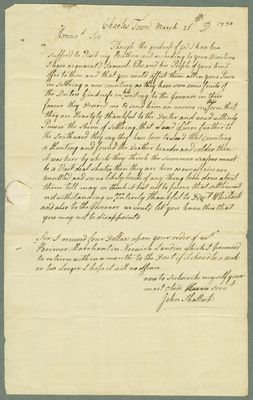 Charles Town March 26th 1770
Honour'd Sir
Though the goodness of god I have been
suffer'd to Visit my Bretheren and according to your Directions
I have acquainted Samuel Niles and his People of your kind
offer to them and that you would assist them
in settling a new country as they have seen some fruits of
the Doctors kindness in writing to the Governor in their
favour they Desired me to send him an answer inform that
they are heartely thankful to the Docter and would willingly
Pursue the Skeem of settleing that Land if were further to
the Southward they say they have been to and that Country
a Hunting and found the weather harder and colder then
it was here by which they think the Summer seasons must
be a Vast deal shorter then they are here as many of them are
unsettled and uncertain by of any thing being done about
them till may we think it best not to persue that settlement
notwithstanding we intirely thankful to Doct Wheelock
and also to the Governor we would let you know this that
you may not be disappointed
Sir I received four Dollars upon your order of Mr
Brimer Marchant in Norwich Landen which I promised
to return within a month to the Doct if it should be a week
or two longer I hope it will no offence
now to subscribe myself your
most Obedt Humm Servt
John Shattock